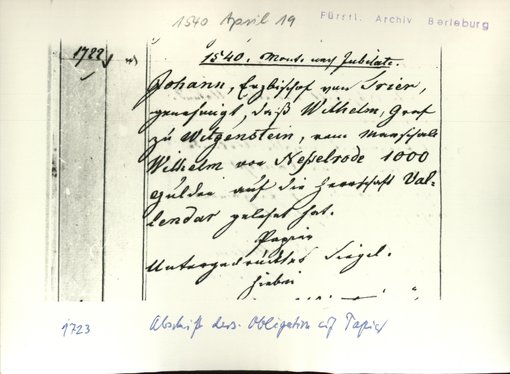 1540 April 19
Fürstl. Archiv Berleburg
1722
1540. Mont. nach Jubilate.
Johann, Erzbischof von Trier,
genehmigt, daß Wilhelm, Graf
zu Witgenstein, vom Marschall
Wilhelm von Neßelrode 1000
Gulden auf die Herrschaft Val-
lendar geliehet hat.
Papier
Untergedrucktes Siegel.
hiebei
1723
Abschrift ders. Obligation auf Papier